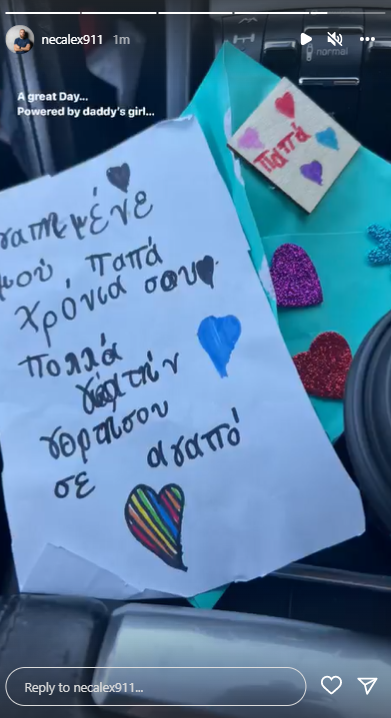 necalex911 1m
normal
A great Day...
Powered by daddy's girl...
παπά
γαπημένε
μού παπά
χρόνια σου
πολλά
τήν
γορτησου
σε αγαπό
Reply to necalex911...